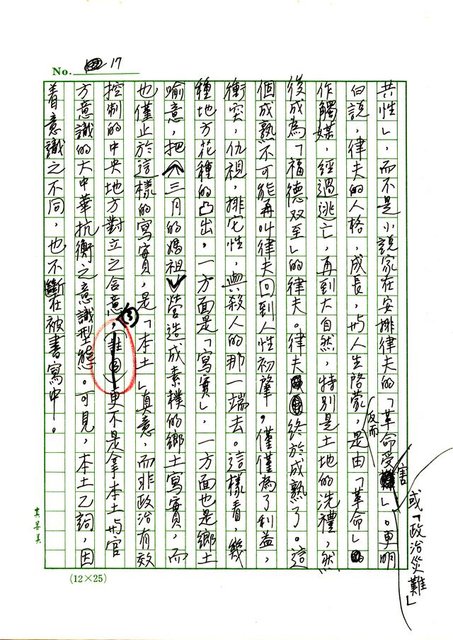 No. 17
共性」，而不是小說家在安排律夫的「革命受害」。更明
或「政治災難」
白說，律夫的人格，成長，與人生啓蒙，反而是由「革命」的
作觸媒，經過逃亡，再到大自然，特別是土地的洗禮，然
後成為「福德双至」的律夫。律夫終於成熟了。這
個成熟不可能再叫律夫回到人性初肇，僅僅為了利益，
衝突，仇視，排它性，與殺人的那一端去。這樣看，幾
種地方花種的凸出，一方面是「寫實」，一方面也是鄉土
喻意，把〈三月的媽祖〉營造成素樸的鄉土寫實，而
也僅止於這樣的寫實，是「本土」真意，而非政治有效
控制的中央地方對立之含意，更不是拿本土與官
方意識的大中華抗衡之意識形態。可見，本土乙詞，因
着意識之不同，也不斷在被書寫中。
(12×25)